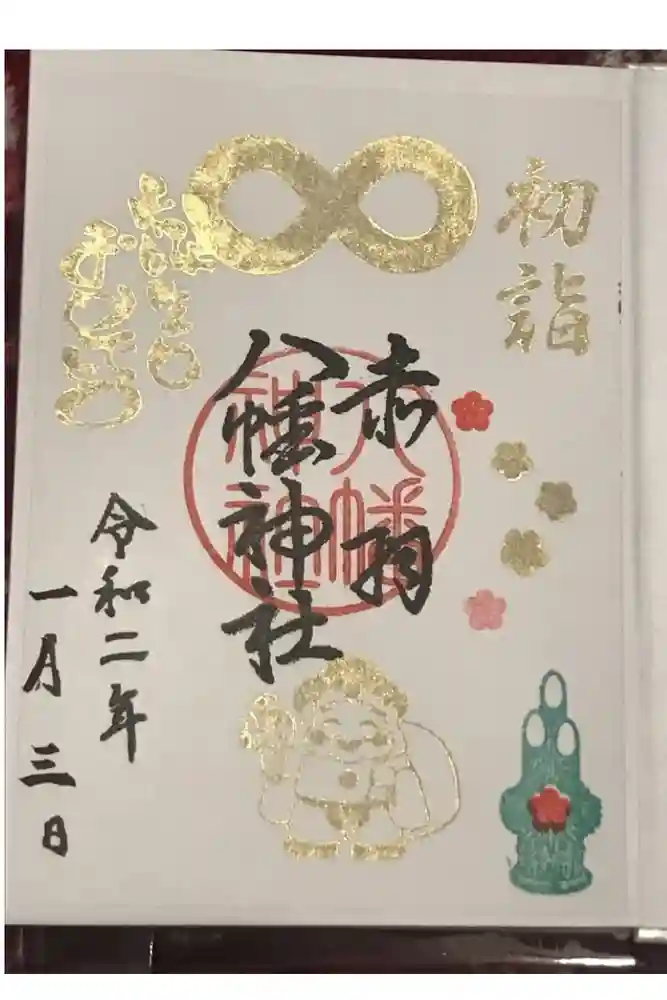 初詣
赤羽
八幡神社
八幡
神社
令和二年
一月三日